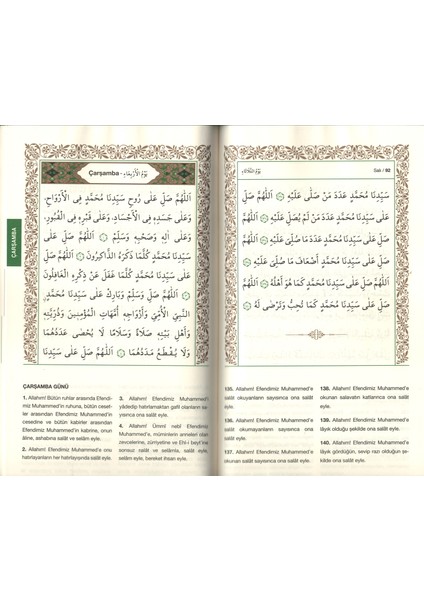 Salı / 92
يَوْمُ الثُّلَاثَاءِ
سَيِّدِنَا مُحَمَّدٍ عَدَدَ مَنْ صَلّٰى عَلَيْهِ ۞ اَللّٰهُمَّ صَلِّ
عَلٰى سَيِّدِنَا مُحَمَّدٍ عَدَدَ مَنْ لَمْ يُصَلِّ عَلَيْهِ ۞ اَللّٰهُمَّ
صَلِّ عَلٰى سَيِّدِنَا مُحَمَّدٍ عَدَدَ مَا صُلِّىَ عَلَيْهِ ۞ اَللّٰهُمَّ
صَلِّ عَلٰى سَيِّدِنَا مُحَمَّدٍ اَضْعَافَ مَا صُلِّىَ عَلَيْهِ ۞
اَللّٰهُمَّ صَلِّ عَلٰى سَيِّدِنَا مُحَمَّدٍ كَمَا هُوَ اَهْلُهُ ۞ اَللّٰهُمَّ
صَلِّ عَلٰى سَيِّدِنَا مُحَمَّدٍ كَمَا تُحِبُّ وَتَرْضٰى لَهُ ۞
135. Allahım! Efendimiz Muhammed'e
salât okuyanların sayısınca ona salât
eyle.
136. Allahım! Efendimiz Muhammed'e
salât okumayanların sayısınca ona
salât eyle.
137. Allahım! Efendimiz Muhammed'e
okunan salât sayısınca ona salât eyle.
138. Allahım! Efendimiz Muhammed'e
okunan salavatın katlarınca ona salât
eyle.
139. Allahım! Efendimiz Muhammed'e
lâyık olduğu şekilde ona salât eyle.
140. Allahım! Efendimiz Muhammed'e
lâyık gördüğün, sevip razı olduğun şe-
kilde ona salât eyle.
Çarşamba - يَوْمُ الْأَرْبِعَاءِ
ÇARŞAMBA
اَللّٰهُمَّ صَلِّ عَلٰى رُوحِ سَيِّدِنَا مُحَمَّدٍ فِى الْأَرْوَاحِ،
وَعَلٰى جَسَدِهِ فِى الْأَجْسَادِ، وَعَلٰى قَبْرِهِ فِى الْقُبُورِ،
وَعَلٰى اٰلِهِ وَصَحْبِهِ وَسَلِّمْ ۞ اَللّٰهُمَّ صَلِّ عَلٰى
سَيِّدِنَا مُحَمَّدٍ كُلَّمَا ذَكَرَهُ الذَّاكِرُونَ ۞ اَللّٰهُمَّ صَلِّ
عَلٰى سَيِّدِنَا مُحَمَّدٍ كُلَّمَا غَفَلَ عَنْ ذِكْرِهِ الْغَافِلُونَ
۞ اَللّٰهُمَّ صَلِّ وَسَلِّمْ وَبَارِكْ عَلٰى سَيِّدِنَا مُحَمَّدٍ،
النَّبِىِّ الْأُمِّىِّ وَأَزْوَاجِهِ أُمَّهَاتِ الْمُؤْمِنِينَ وَذُرِّيَّتِهِ
وَأَهْلِ بَيْتِهِ صَلَاةً وَسَلَامًا لَا يُحْصٰى عَدَدُهُمَا
وَلَا يُقْطَعُ مَدَدُهُمَا ۞ اَللّٰهُمَّ صَلِّ عَلٰى سَيِّدِنَا
ÇARŞAMBA GÜNÜ
1. Allahım! Bütün ruhlar arasında Efendi-
miz Muhammed'in ruhuna, bütün ceset-
ler arasından Efendimiz Muhammed'in
cesedine ve bütün kabirler arasından
Efendimiz Muhammed'in kabrine, onun
âline, ashabına salât ve selâm eyle.
2. Allahım! Efendimiz Muhammed'e onu
hatırlayanların her hatırlayışında salât eyle.
3. Allahım! Efendimiz Muhammed'e
yâdedip hatırlamaktan gafil olanların sa-
yısınca ona salât eyle.
4. Allahım! Ümmî nebî Efendimiz
Muhammed'e, müminlerin anneleri olan
zevcelerine, zürriyetine ve Ehl-i beyt'ine
sonsuz salât ve selâmla, salât eyle,
selâm eyle, bereket ihsan eyle.